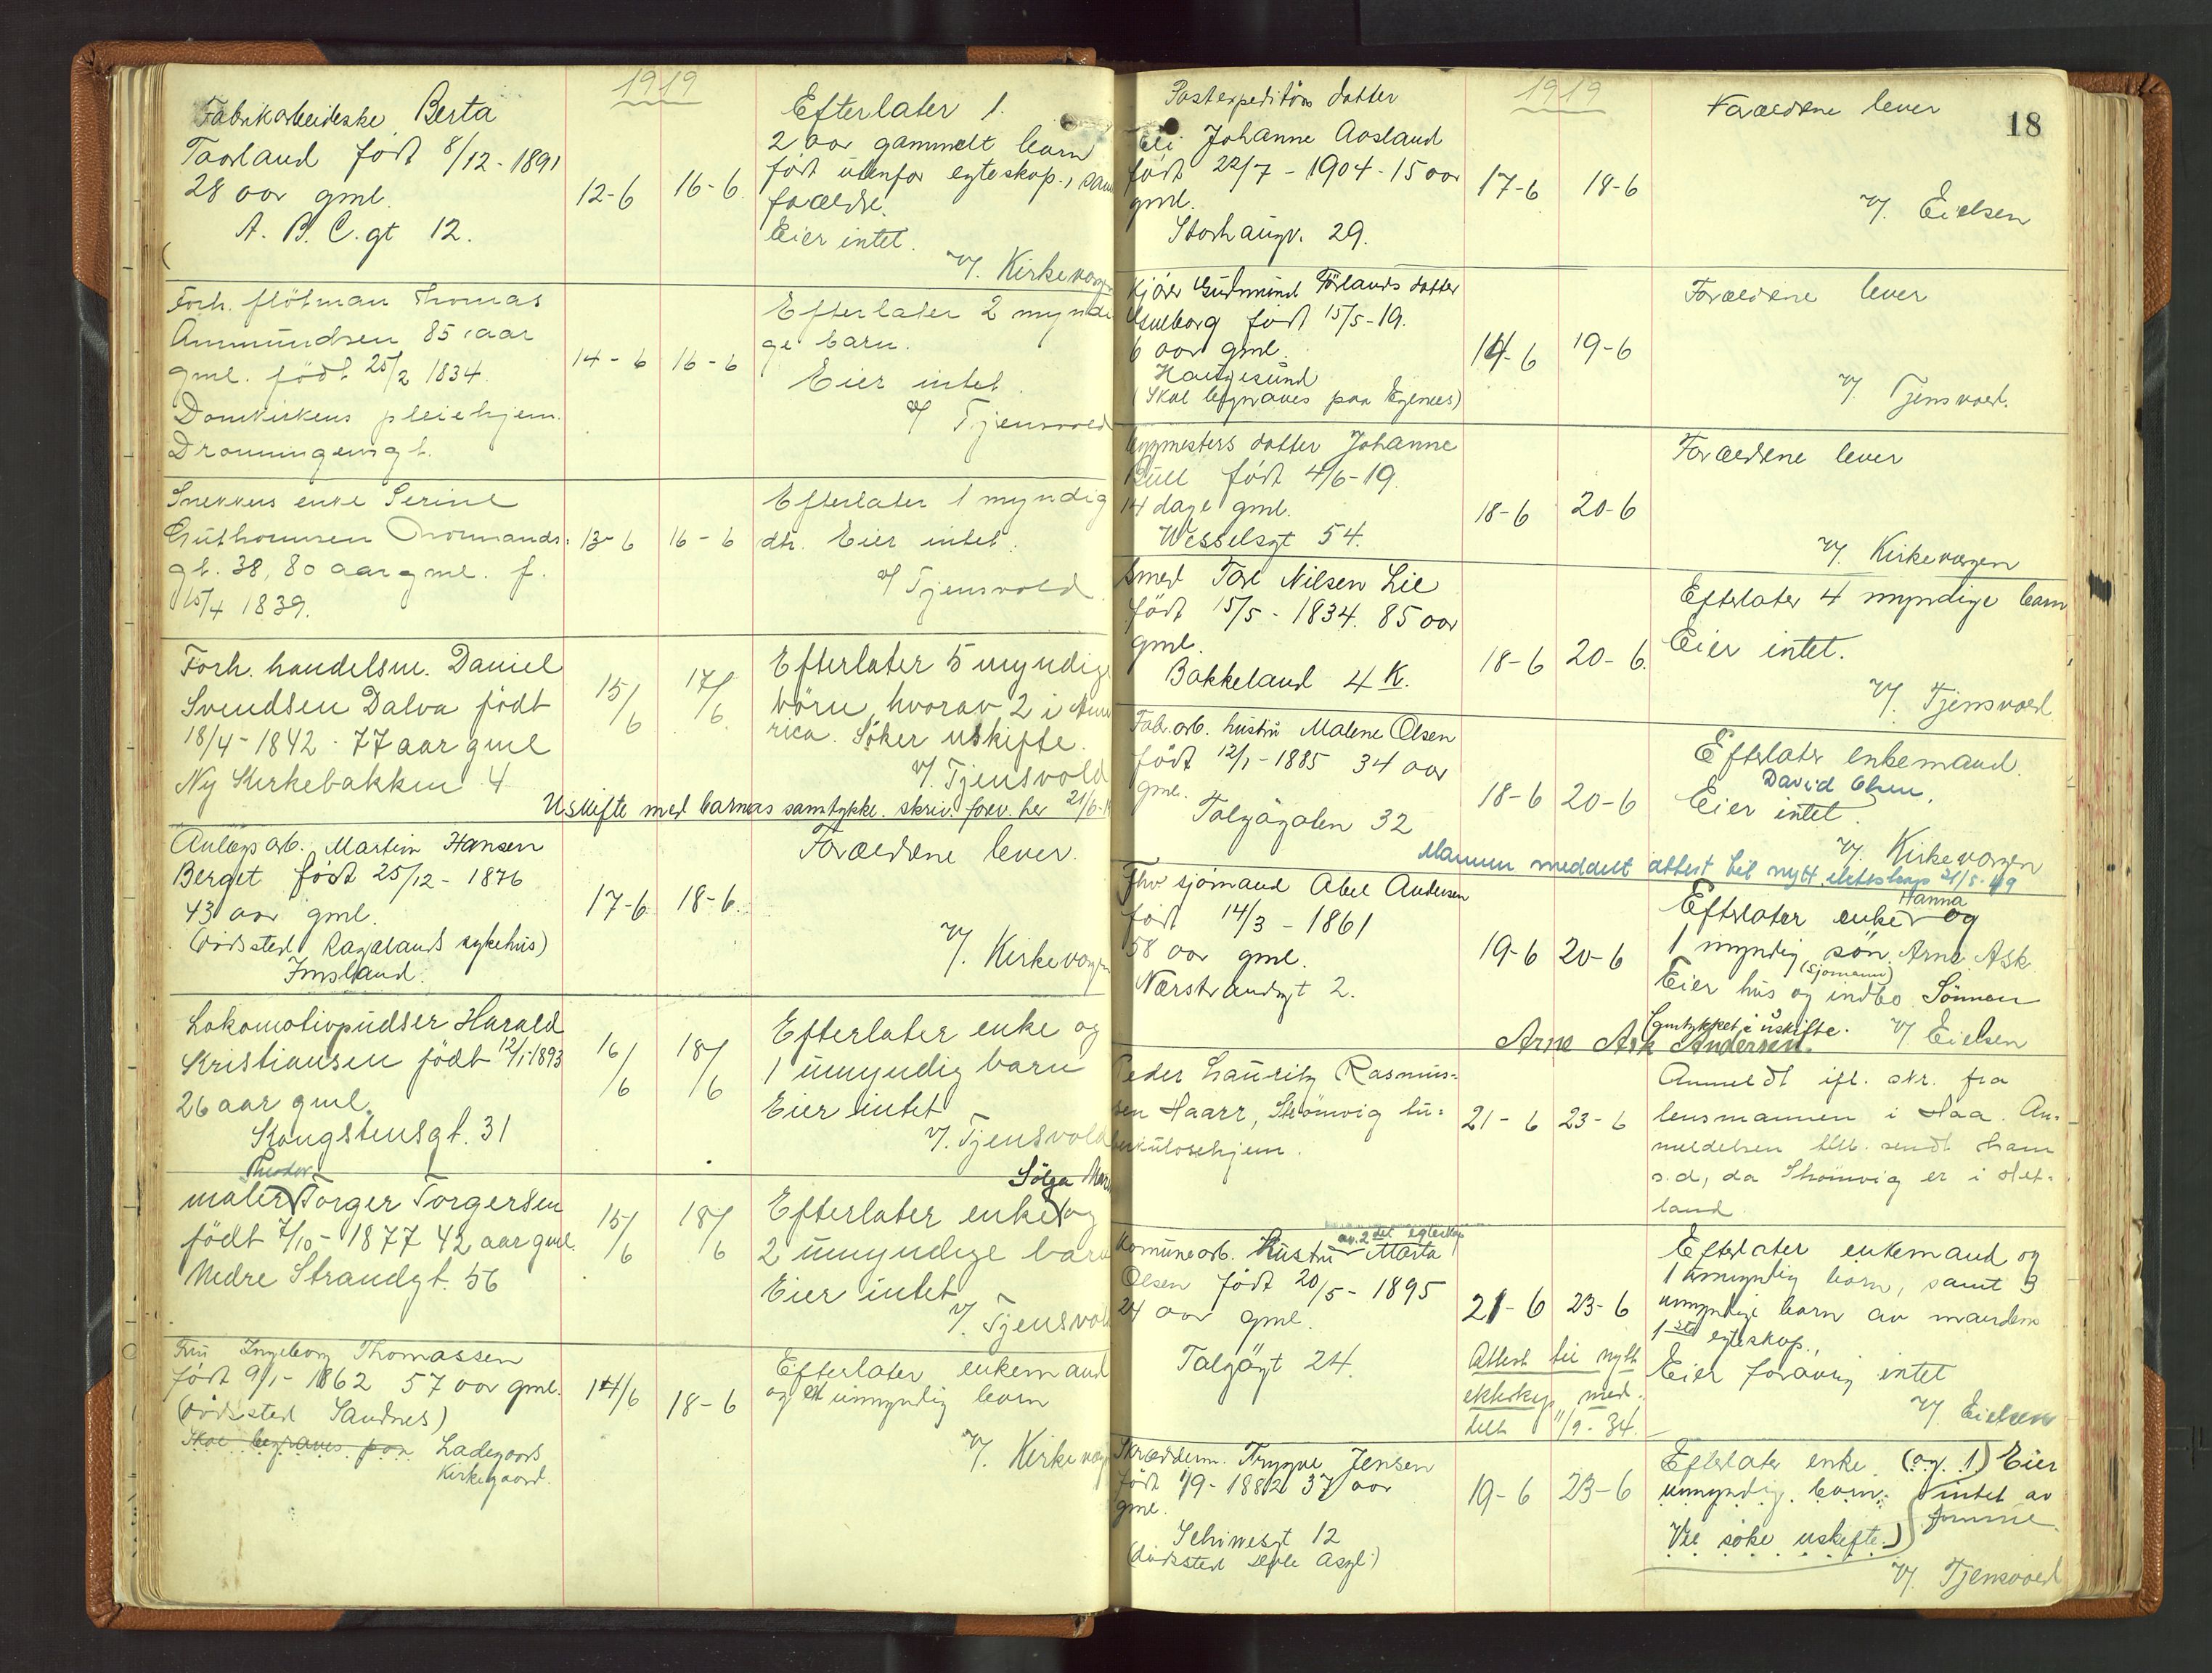 1919
Fabrikarbeiderske Berta
Taarland født 8/12-1891
28 aar gml.
A. B. C. gt 12.
12-6
16-6.
Efterlater 1.
2 aar gammelt barn
født utenfor egteskap, samt
forældre.
Eier intet.
V/. Kirkevergen
Forh. flötman Thomas
Ammundsen 85 aar
gml. født 25/2 1834.
Domkirkens pleiehjem.
Dronningensgt.
14-6
16-6
Efterlater 2 myndi
ge barn.
Eier intet.
V/ Tjensvold
Snekkers enke Serine
Guthormsen Normands-
gt. 38, 80 aar gml. f.
15/4 1839.
13-6
16-6
Efterlater 1 myndig
dtr. Eier intet.
V/ Tjensvold
Forh. handelsm. Daniel
Svendsen Dalva født
18/4-1842. 77 aar gml
Ny Kirkebakken 4
15/6
17/6
Efterlater 5 myndige
börn, hvorav 2 i Ame
rica. Söker uskifte.
V/. Tjensvold
Uskifte med barnas samtykke. skriv. forv. her 21/6-19
Anlægsarb. Martin Hansen
Berget født 25/12-1876
43 aar gml.
(dødssted Rogalands sykehus)
Imsland.
17-6
18-6.
Forældrene lever.
V/. Kirkevergen
Lokomotivpudser Harald
Kristiansen født 12/1-1893
26 aar gml.
Kongstensgt. 31
16/6
18/6
Efterlater enke og
1 umyndig barn
Eier intet
V/. Tjensvold
Theodor
maler Torger Torgersen
født 7/10-1877 42 aar gml.
Nedre Strandgt. 56
15/6
18/6
Sölga Mar
Efterlater enke og
2 umyndige barn
Eier intet
V/. Tjensvold
Fru Ingeborg Thomassen
født 9/1-1862 57 aar gml.
(dødssted Sandnes)
Skal begraves paa Ladegaards
Kirkegaard.
14/6
18-6
Efterlater enkemand
og et umyndig barn
V/. Kirkevergen
18
1919
Postexpeditørs datter
Eli Johanne Aosland
født 22/7-1904-15 aar
gml.
Storhaugv. 29.
17-6
18-6
Forældrene lever
V/. Eielsen
Kjörer Gudmund Förlands datter
født 15/5-19.
6 aar gml.
Haugesund
(Skal begraves paa Egenes)
14-6
19-6
Forældrene lever
V/. Tjensvold.
bygmesters datter Johanne
Bull født 4/6-19.
14 dage gml.
Wesselsgt 54.
18-6
20-6
Forældrene lever
V/. Kirkevergen
Smed Tarl Nilsen Lie
født 15/5-1834. 85 aar
gml.
Bakkeland 4 K.
18-6
20-6.
Efterlater 4 myndige barn
Eier intet.
V/. Tjensvold
Fab. arb. hustru Malene Olsen
født 12/1-1885 34 aar
gml.
Talgøgaten 32
18-6
20-6
Efterlater enkemand.
David Olsen.
Eier intet.
V/. Kirkevergen
Mannen meddelt attest til nytt ekteskap 21/5-49
Fhv sjömand Abel Andersen
født 14/3-1861
58 aar gml.
Nærstrandsgt 2.
19-6
20-6
Hanna
Efterlater enke og
1 myndig sön. Arne Ask
(Sjömann)
Eier hus og indbo. Sönnen
samtykket i uskifte.
V/ Eielsen
Arne Ask Andersen.
Peder Lauritz Rasmus-
sen Haarr, Strömvig tu-
berkulosehjem.
21-6
23-6
Anmeldt ifl. skr. fra
lensmannen i Haa. An-
meldelsen tilb. sendt ham
s.d, da Strömvig er i Het-
land.
av 2det egteskap
Komunearb. hustru Marta
Olsen født 20/5-1895
24 aar gml.
Talgøgt 24.
21-6
23-6
Attest til nytt
ekteskap med-
delt 11/9-34.
Efterlater enkemand og
1 umyndig barn, samt 3
umyndige barn av mandens
1ste egteskap.
Eier forøvrig intet
V/. Eielsen
Skrædderm. Trygve Jensen
født 1/9-1882 37 aar
gml.
Schiwesgt 12
(dødssted Asyl)
19-6
23-6
Efterlater enke (og 1) Eier
umyndig barn. intet av
formue.
Vil söke uskifte.
V/. Tjensvold